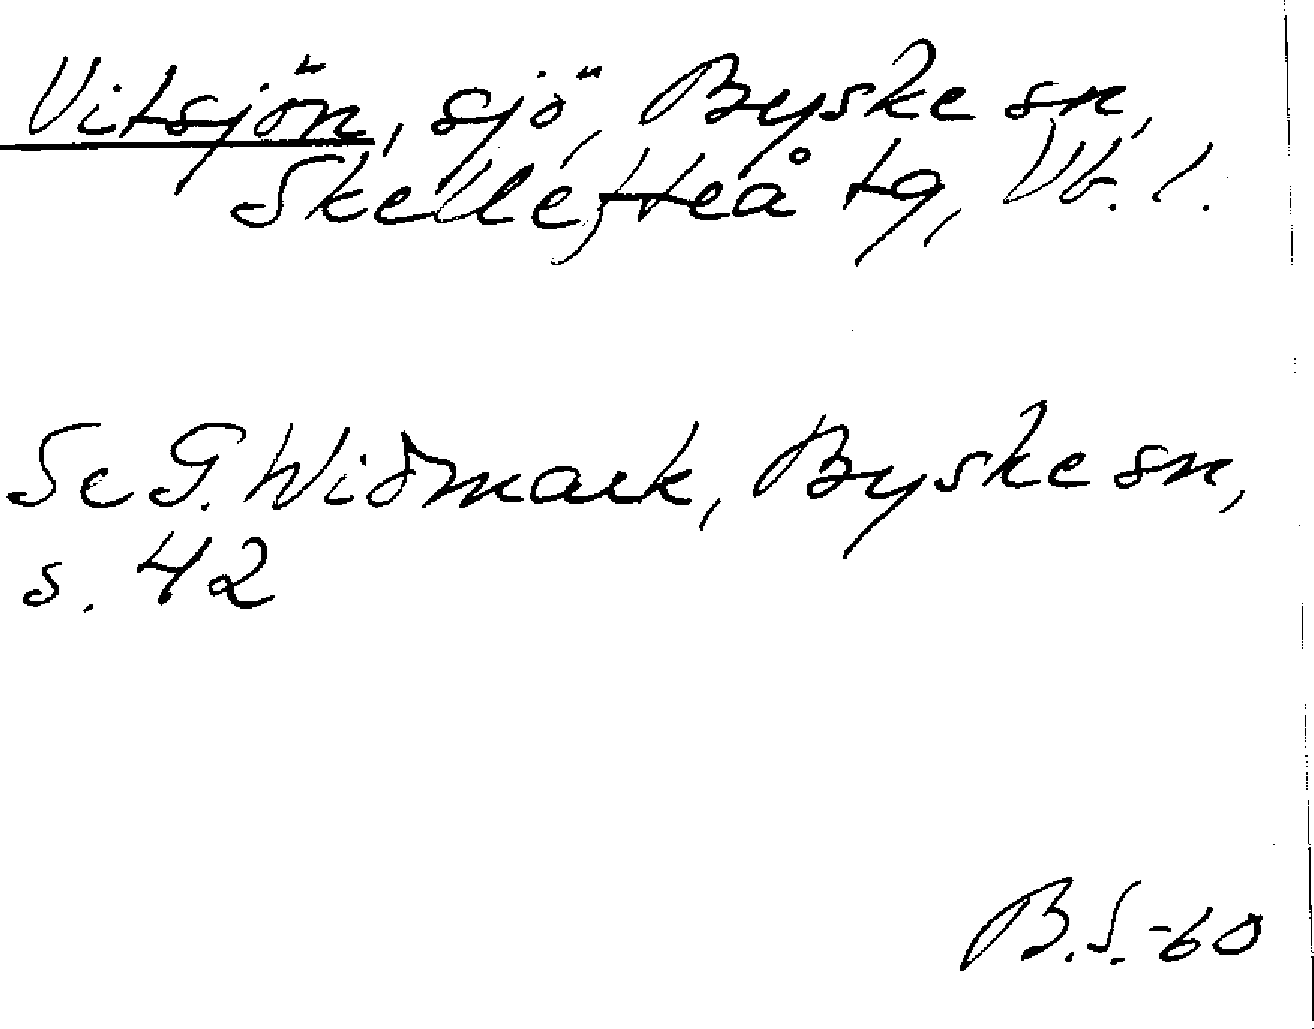 Vitsjön, sjö, Byske sn,
Skellefteå tg, Vb. l.
Se G. Widmark, Byske sn,
s. 42
B.S.-60